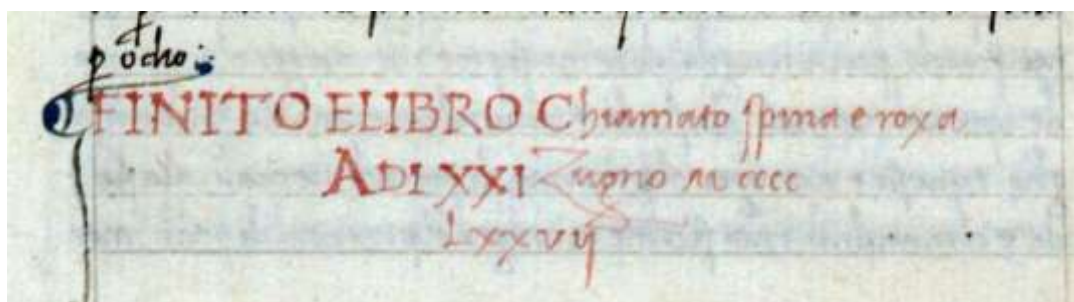 p ocho
FINITO ELIBRO Chiamato spina e roxa
ADI XXI Zugno M cccc
Lxxvij